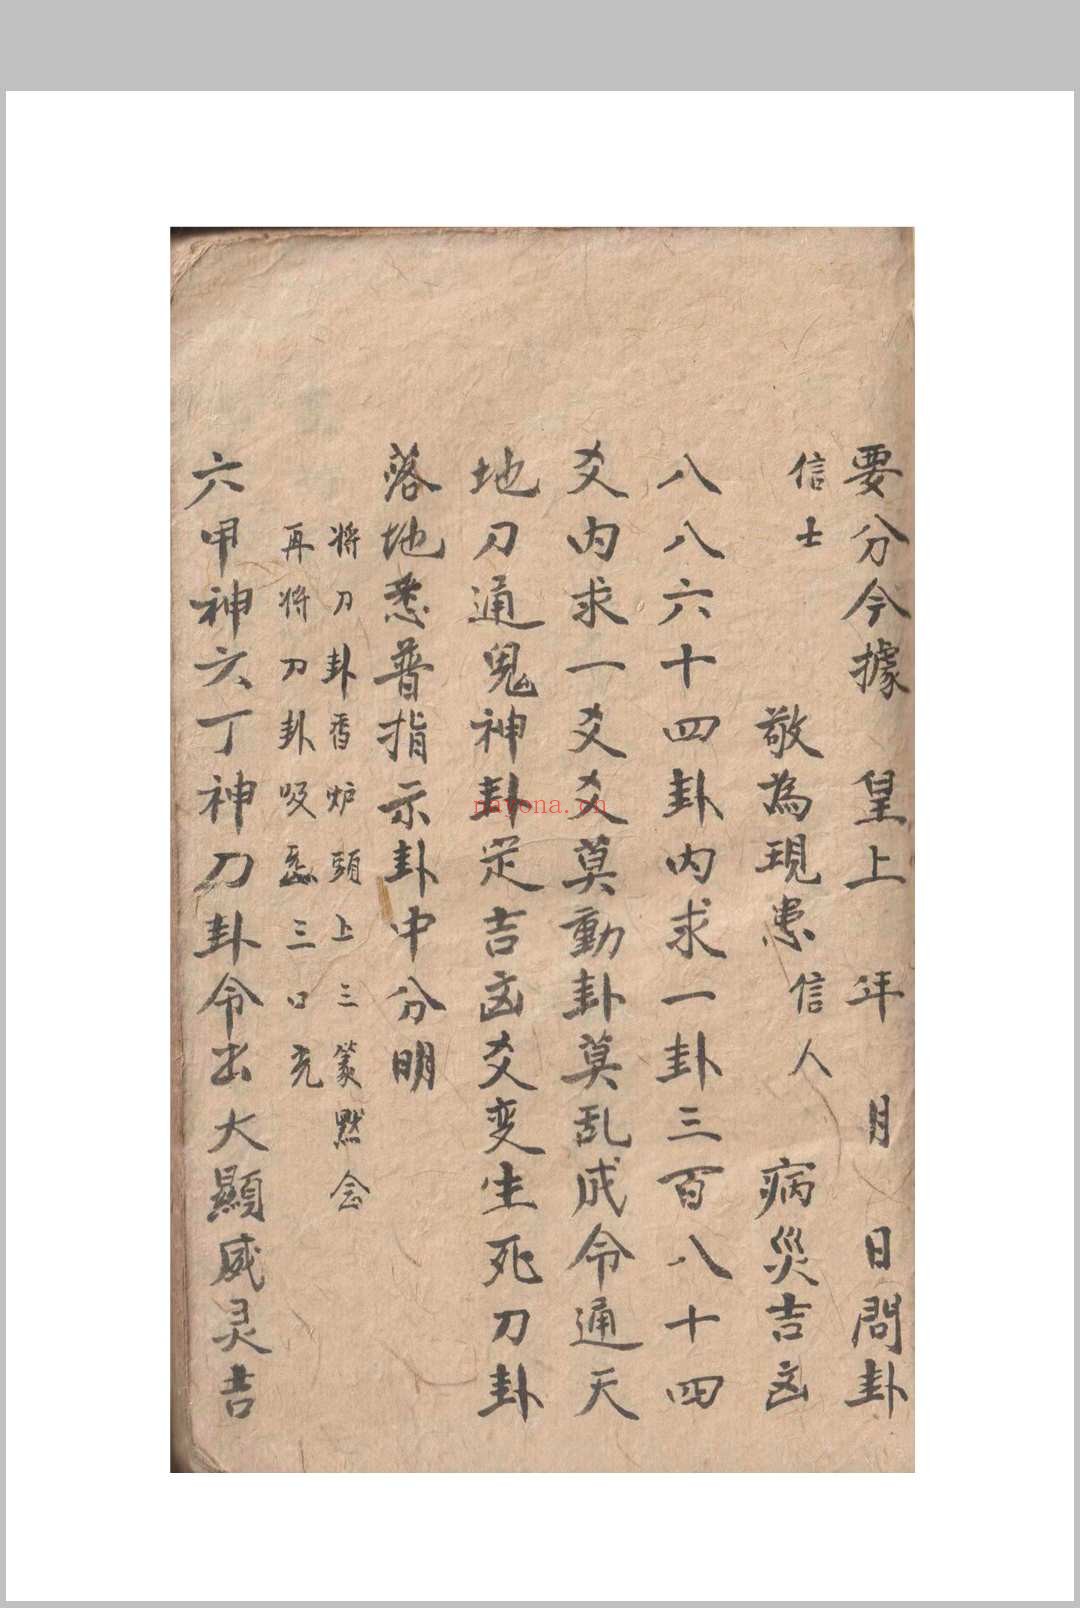 要分今據　皇上　年　月　日問卦
信士　敬為現患信人　病災吉凶
八八六十四卦內求一卦三百八十四
爻內求一爻爻莫動卦莫乱成令通天
地刀通鬼神卦定吉凶爻变生死刀卦
落地悉普指示卦中分明
将刀卦香炉頭上三篆默念
再将刀卦吸三口
六甲神六丁神刀卦令出大顯威灵吉
nayona.cn